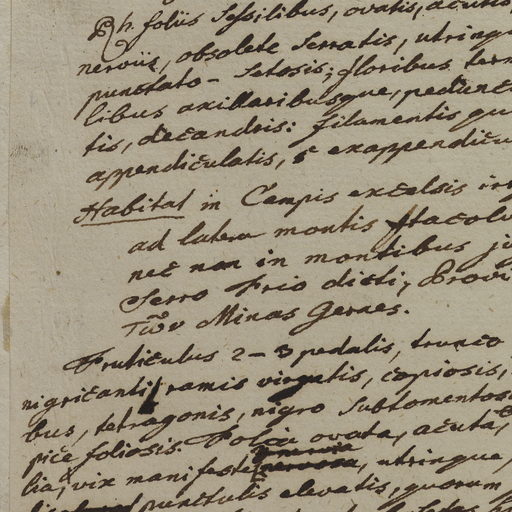 Rh. foliis Sessilibus, ovatis, acutis
nerviis, obsolete Serratis, utrinqu
punctato-Setosis; floribus term
libus axillaribusque, pedunc
tis, decandris: filamentis qu
appendiculatis, 5 exappendicu
Habitat in Campis excelsis
ad latera montis Itacolu
nec non in montibus
Serro Frio dicti, Provi
τῶν Minas Geraes.
Fruticulus 2-3 pedalis, trunco
nigricanti, ramis virgatis, copiosis,
bus, tetragonis, nigro Subtomentos
pice foliosis. Folia ovata, acuta,
lia, vix manifeste nervosa, utrinque
punctulis elevatis, quorum